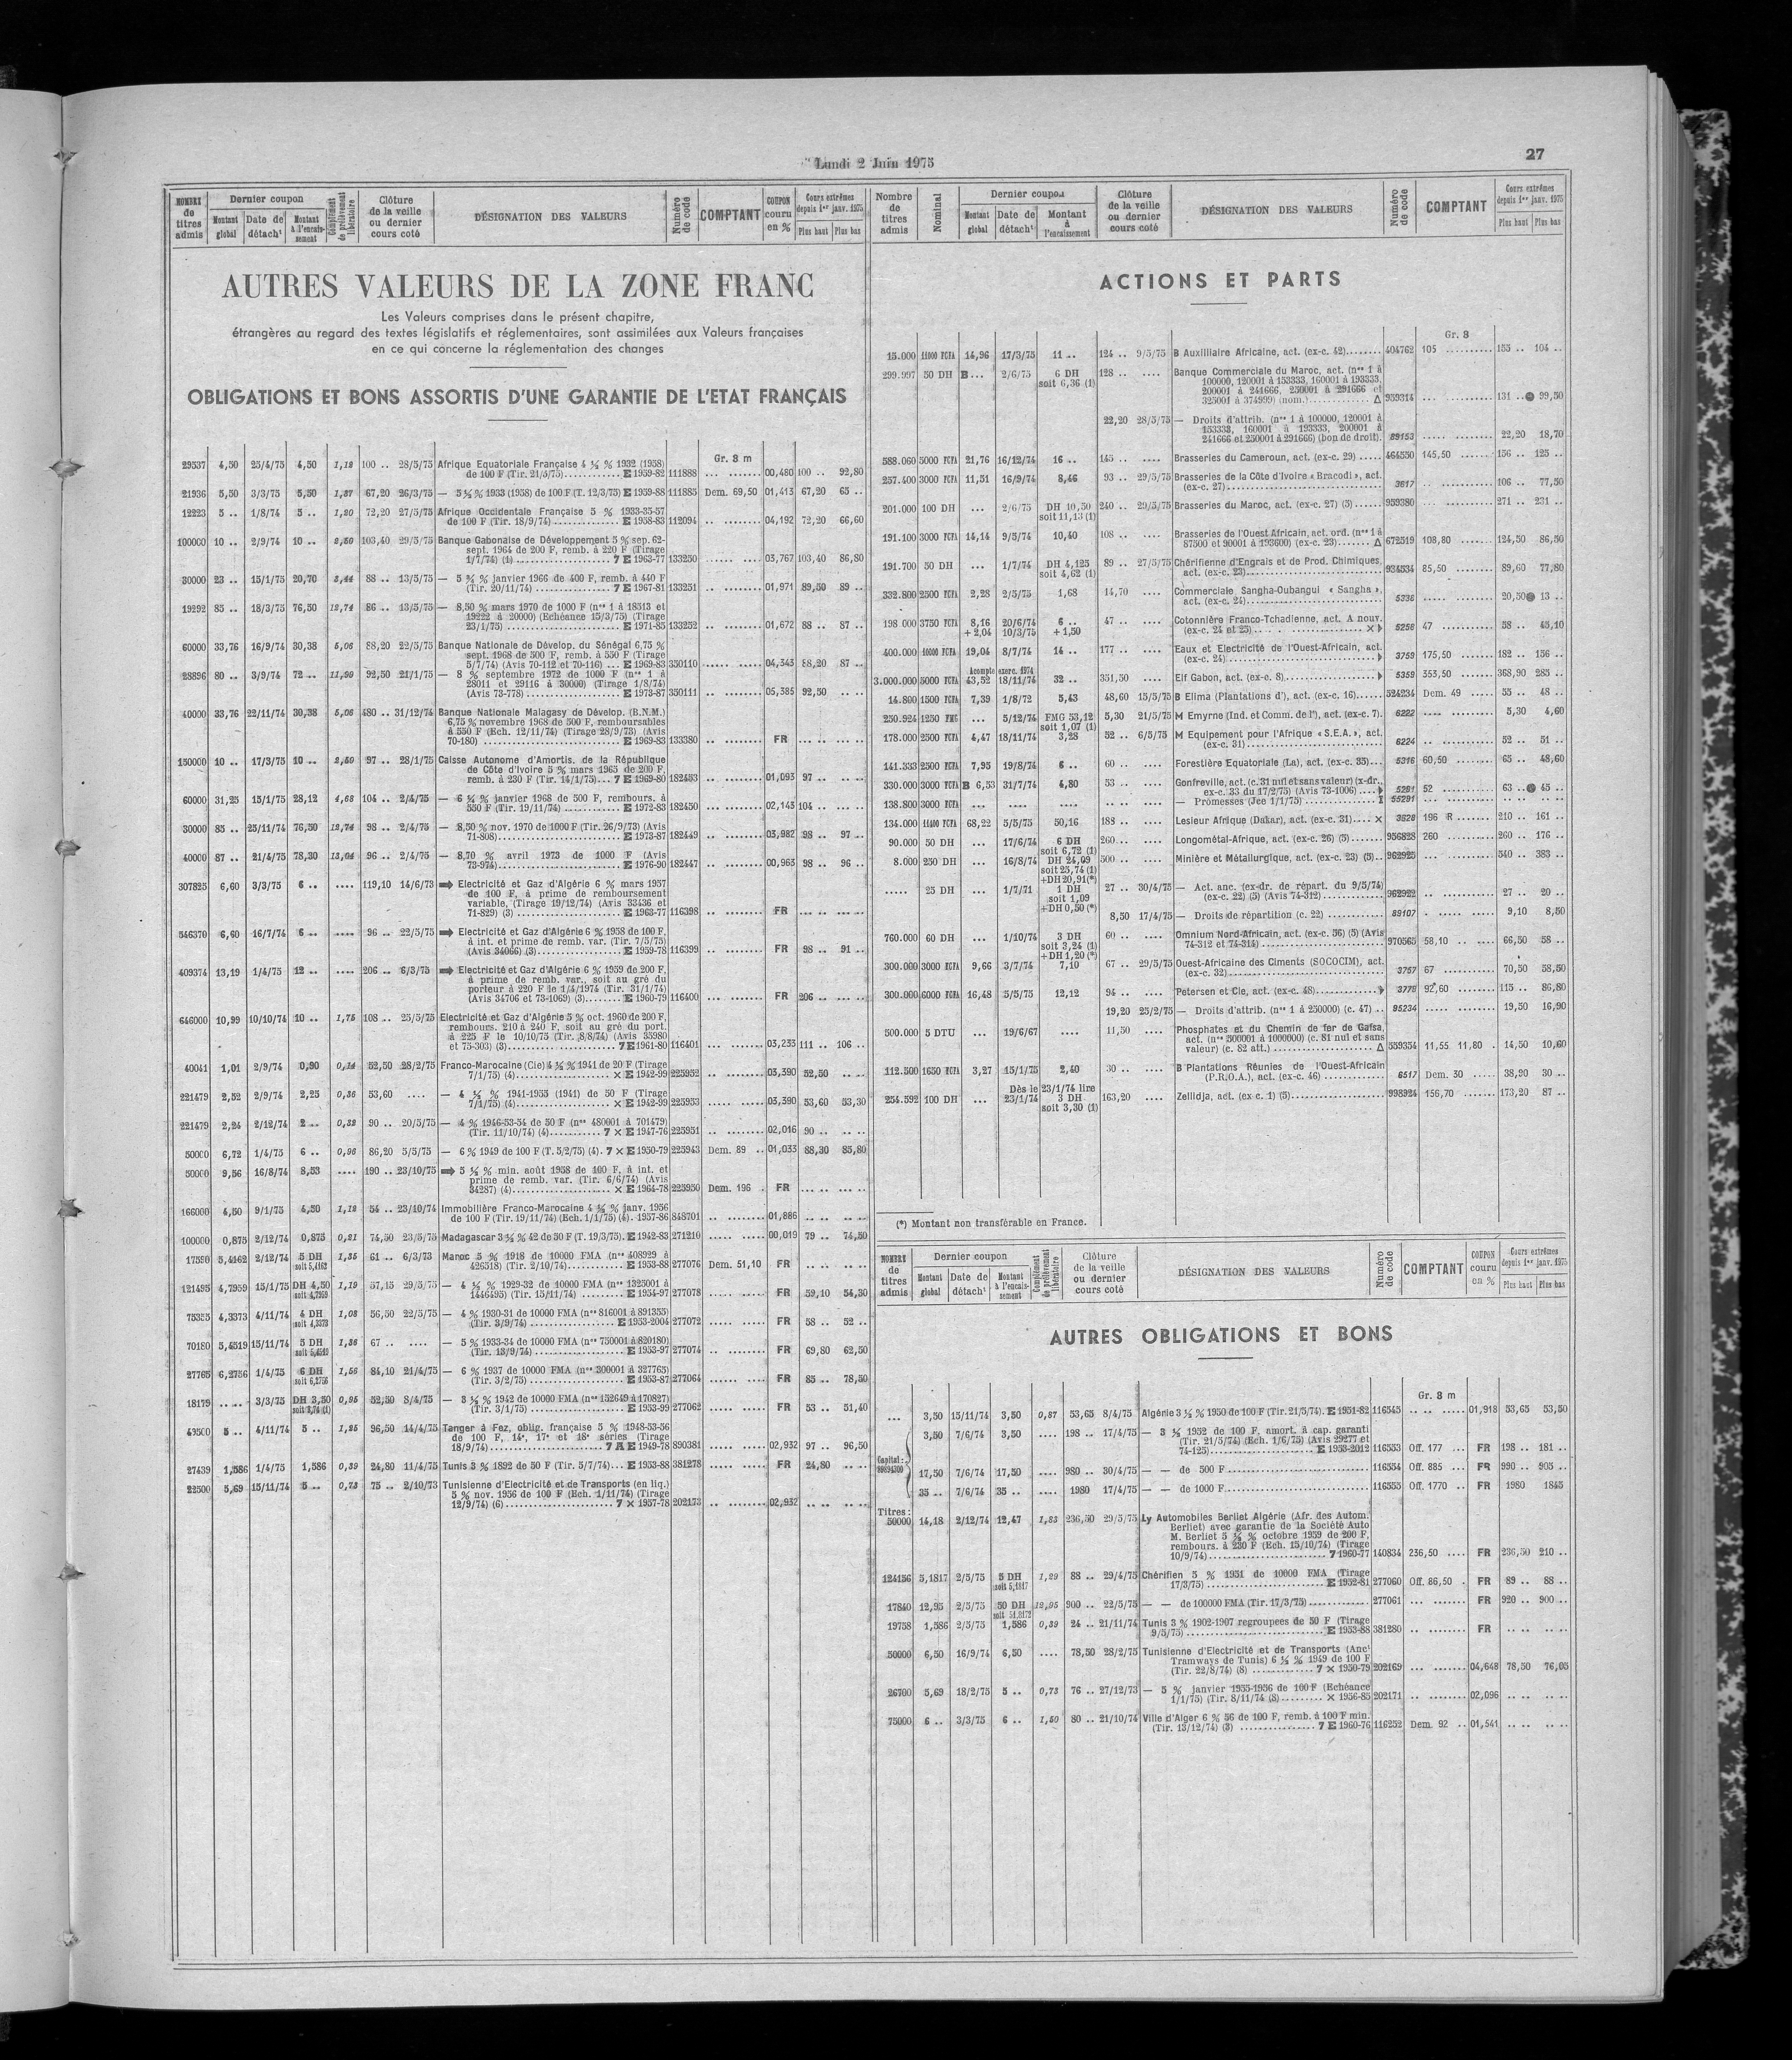 Lundi 2 Juin 1975
27
NOMBRE de titres admis | Dernier coupon | Montant global | Date de détach¹ | Montant à l'encaissement | Complément de prélèvement libératoire | Clôture de la veille ou dernier cours coté | DÉSIGNATION DES VALEURS | Numéro de code | COMPTANT | COUPON couru en % | Cours extrêmes depuis 1er janv. 1975 | Plus haut | Plus bas
AUTRES VALEURS DE LA ZONE FRANC
Les Valeurs comprises dans le présent chapitre,
étrangères au regard des textes législatifs et réglementaires, sont assimilées aux Valeurs françaises
en ce qui concerne la réglementation des changes
OBLIGATIONS ET BONS ASSORTIS D'UNE GARANTIE DE L'ETAT FRANÇAIS
Gr. 8 m
29537 4,50 25/4/75 4,50 1,12 100 .. 28/5/75 Afrique Equatoriale Française 4 ½ % 1932 (1958)
de 100 F (Tir. 21/5/75) E 1959-82 111888 00,480 100 .. 92,80
21936 5,50 3/3/75 5,50 1,37 67,20 26/3/75 — 5 ½ % 1933 (1958) de 100 F (T. 12/3/75) E 1959-88 111885 Dem. 69,50 01,413 67,20 65 ..
12223 5 .. 1/8/74 5 .. 1,20 72,20 27/5/75 Afrique Occidentale Française 5 % 1933-35-57
de 100 F (Tir. 18/9/74) E 1958-83 112094 04,192 72,20 66,60
100000 10 .. 2/9/74 10 .. 2,50 103,40 29/5/75 Banque Gabonaise de Développement 5 % sep. 62-
sept. 1964 de 200 F, remb. à 220 F (Tirage
1/7/74) (4) 7 E 1963-77 133250 03,767 103,40 86,80
30000 23 .. 15/1/75 20,70 88 .. 13/5/75 — 5 ¾ % janvier 1966 de 400 F, remb. à 440 F
(Tir. 20/11/74) 7 E 1967-81 133251 01,971 89,50 89 ..
19292 85 .. 18/3/75 76,50 12,74 86 .. 13/5/75 — 8,50 % mars 1970 de 1000 F (n°° 1 à 18513 et
19222 à 20000) (Echéance 15/3/75) (Tirage
23/1/75) E 1971-85 133252 01,672 88 .. 87 ..
60000 33,76 16/9/74 30,38 5,06 88,20 22/5/75 Banque Nationale de Dévelop. du Sénégal 6,75 %
sept. 1968 de 500 F, remb. à 550 F (Tirage
5/7/74) (Avis 70-112 et 70-116) E 1969-83 350110 04,343 88,20 87 ..
28896 80 .. 3/9/74 72 .. 11,99 92,50 21/1/75 — 8 % septembre 1972 de 1000 F (n°° 1 à
28011 et 29116 à 30000) (Tirage 1/8/74)
(Avis 73-778) E 1973-87 350111 05,385 92,50
40000 33,76 22/11/74 30,38 5,06 480 .. 31/12/74 Banque Nationale Malagasy de Dévelop. (B.N.M.)
6,75 % novembre 1968 de 500 F, remboursables
à 550 F (Ech. 12/11/74) (Tirage 28/9/73) (Avis
70-180) E 1969-83 133380 FR
150000 10 .. 17/3/75 10 .. 2,50 97 .. 28/1/75 Caisse Autonome d'Amortis. de la République
de Côte d'Ivoire 5 % mars 1965 de 200 F,
remb. à 230 F (Tir. 14/1/75) 7 E 1969-80 182453 01,093 97 ..
60000 31,25 15/1/75 28,12 4,68 104 .. 2/4/75 — 6 ¼ % janvier 1968 de 500 F, rembours. à
550 F (Tir. 19/11/74) E 1972-83 182450 02,143 104 ..
30000 85 .. 25/11/74 76,50 12,74 98 .. 2/4/75 — 8,50 % nov. 1970 de 1000 F (Tir. 26/9/73) (Avis
71-808) E 1973-87 182449 03,982 98 .. 97 ..
40000 87 .. 21/4/75 78,30 13,04 96 .. 2/4/75 — 8,70 % avril 1973 de 1000 F (Avis
73-974) E 1976-90 182447 00,963 98 .. 96 ..
307825 6,60 3/3/75 6 .. 119,10 14/6/73 Electricité et Gaz d'Algérie 6 % mars 1957
de 100 F, à prime de remboursement
variable, (Tirage 19/12/74) (Avis 33436 et
71-829) (3) E 1963-77 116398 FR
546370 6,60 16/7/74 6 .. 96 .. 22/5/75 Electricité et Gaz d'Algérie 6 % 1958 de 100 F,
à int. et prime de remb. var. (Tir. 7/5/75)
(Avis 34066) (3) E 1959-78 116399 FR 98 .. 91 ..
409374 13,19 1/4/75 12 .. 206 .. 6/3/75 Electricité et Gaz d'Algérie 6 % 1959 de 200 F,
à prime de remb. var., soit au gré du
porteur à 220 F le 1/4/1974 (Tir. 31/1/74)
(Avis 34706 et 73-1069) (3) E 1960-79 116400 FR 206
646000 10,99 10/10/74 10 .. 1,75 108 .. 25/5/75 Electricité et Gaz d'Algérie 5 % oct. 1960 de 200 F,
rembours. 210 à 240 F, soit au gré du port.
à 225 F le 10/10/75 (Tir. 8/8/74) (Avis 35980
et 75-303) (3) 7 E 1961-80 116401 03,233 111 .. 106 ..
40041 1,01 2/9/74 0,90 0,14 52,50 28/2/75 Franco-Marocaine (Cie) 4 ½ % 1941 de 20 F (Tirage
7/1/75) (4) × E 1942-99 225952 03,390 52,50
221479 2,52 2/9/74 2,25 0,36 53,60 — 4 ½ % 1941-1955 (1941) de 50 F (Tirage
7/1/75) (4) × E 1942-99 225953 03,390 53,60 53,30
221479 2,24 2/12/74 2 .. 0,32 90 .. 20/5/75 — 4 % 1946-53-54 de 50 F (n°° 480001 à 701479)
(Tir. 11/10/74) (4) 7 × E 1947-76 225951 02,016 90
50000 6,72 1/4/75 6 .. 0,96 86,20 5/5/75 — 6 % 1949 de 100 F (T. 5/2/75) (4) 7 × E 1950-79 225943 Dem. 89 .. 01,033 88,30 85,80
50000 9,56 16/8/74 8,53 190 .. 23/10/75 5 ½ % min. août 1958 de 100 F, à int. et
prime de remb. var. (Tir. 6/6/74) (Avis
34287) (4) × E 1964-78 225950 Dem. 196 FR
166000 4,50 9/1/75 4,50 1,12 54 .. 23/10/74 Immobilière Franco-Marocaine 4 ½ % janv. 1956
de 100 F (Tir. 19/11/74) (Ech. 1/1/75) (4). 1957-86 848701 01,886
100000 0,875 2/12/74 0,875 0,21 74,50 23/5/75 Madagascar 3 ½ % 42 de 50 F (T. 19/3/75). E 1942-83 271210 00,019 79 .. 74,50
17580 5,4162 2/12/74 5 DH soit 5,4162 1,35 61 .. 6/3/73 Maroc 5 % 1918 de 10000 FMA (n°° 408929 à
426518) (Tir. 2/10/74) E 1953-88 277076 Dem. 51,10 FR
121495 4,7959 15/1/75 DH 4,50 soit 4,7959 1,19 57,15 29/5/75 — 4 ½ % 1929-32 de 10000 FMA (n°° 1325001 à
1446495) (Tir. 15/11/74) E 1954-97 277078 FR 59,10 54,30
75355 4,3373 4/11/74 4 DH soit 4,3373 1,08 56,50 22/5/75 — 4 % 1930-31 de 10000 FMA (n°° 816001 à 891355)
(Tir. 3/9/74) E 1953-2004 277072 FR 58 .. 52 ..
70180 5,4519 15/11/74 5 DH 1,36 67 .. — 5 % 1933-34 de 10000 FMA (n°° 750001 à 820180)
(Tir. 13/9/74) E 1953-97 277074 FR 69,80 62,50
27765 6,2756 1/4/75 6 DH soit 6,2756 1,56 84,10 21/4/75 — 6 % 1937 de 10000 FMA (n°° 300001 à 327765)
(Tir. 3/2/75) E 1953-87 277064 FR 85 .. 78,50
18179 3/3/75 DH 3,50 0,95 52,50 8/4/75 — 3 ½ % 1942 de 10000 FMA (n°° 152649 à 170827)
(Tir. 3/1/75) E 1953-99 277062 FR 53 .. 51,40
49500 5 .. 4/11/74 5 .. 1,25 96,50 14/4/75 Tanger à Fez, oblig. française 5 % 1948-53-56
de 100 F, 14e, 17e et 18e séries (Tirage
18/9/74) 7 A E 1949-78 890381 02,932 97 .. 96,50
27439 1,586 1/4/75 1,586 0,39 24,80 11/4/75 Tunis 3 % 1892 de 50 F (Tir. 5/7/74) E 1953-88 381278 FR 24,80
22500 5,69 15/11/74 5 .. 0,73 75 .. 2/10/73 Tunisienne d'Electricité et de Transports (en liq.)
5 % nov. 1956 de 100 F (Ech. 1/11/74) (Tirage
12/9/74) (6) 7 × 1957-78 202173 02,932
Nombre de titres admis | Nominal | Dernier coupon | Montant global | Date de détach¹ | Montant à l'encaissement | Clôture de la veille ou dernier cours coté | DÉSIGNATION DES VALEURS | Numéro de code | COMPTANT | Cours extrêmes depuis 1er janv. 1975 | Plus haut | Plus bas
ACTIONS ET PARTS
Gr. 8
15.000 11000 FCFA 14,96 17/3/75 11 .. 124 .. 9/5/75 B Auxiliaire Africaine, act. (ex-c. 42) 404762 105 155 .. 104 ..
299.997 50 DH B... 2/6/75 6 DH soit 6,36 (1) 128 .. Banque Commerciale du Maroc, act. (n°° 1 à
100000, 120001 à 153333, 160001 à 193333,
200001 à 241666, 250001 à 291666 et
325001 à 374999) (nom.) Δ 959314 131 .. 99,50
22,20 28/5/75 — Droits d'attrib. (n°° 1 à 100000, 120001 à
153333, 160001 à 193333, 200001 à
241666 et 250001 à 291666) (bon de droit). 89153 22,20 18,70
588.060 5000 FCFA 21,76 16/12/74 16 .. 145 .. Brasseries du Cameroun, act. (ex-c. 29) 464550 145,50 156 .. 125 ..
257.400 3000 FCFA 11,51 16/9/74 8,46 93 .. 29/5/75 Brasseries de la Côte d'Ivoire « Bracodi », act.
(ex-c. 27) 3617 106 .. 77,50
201.000 100 DH ... 2/6/75 DH 10,50 soit 11,13 (1) 240 .. 29/5/75 Brasseries du Maroc, act. (ex-c. 27) (5) 959380 271 .. 231 ..
191.100 3000 FCFA 14,14 9/5/74 10,40 108 .. Brasseries de l'Ouest Africain, act. ord. (n°° 1 à
87500 et 90001 à 193600) (ex-c. 23) Δ 672519 108,80 124,50 86,50
191.700 50 DH ... 1/7/74 DH 4,125 soit 4,62 (1) 89 .. 27/5/75 Chérifienne d'Engrais et de Prod. Chimiques,
act. (ex-c. 23) 934534 85,50 89,60 77,80
332.800 2500 FCFA 2,28 2/5/75 1,68 14,70 Commerciale Sangha-Oubangui « Sangha »,
act. (ex-c. 24) 5336 20,50 13 ..
198 000 3750 FCFA 8,16 20/6/74 6 .. 47 .. Cotonnière Franco-Tchadienne, act. A nouv.
+ 2,04 10/3/75 + 1,50 (ex-c. 24 et 25) × 5258 47 58 .. 45,10
400.000 10000 FCFA 19,04 8/7/74 14 .. 177 .. Eaux et Electricité de l'Ouest-Africain, act.
(ex-c. 24) 3759 175,50 182 .. 156 ..
Acompte exerc. 1974
3.000.000 5000 FCFA 43,52 18/11/74 32 .. 351,50 Elf Gabon, act. (ex-c. 8) 5359 353,50 368,90 285 ..
14.800 1500 FCFA 7,39 1/8/72 5,43 48,60 15/5/75 B Elima (Plantations d'), act. (ex-c. 16) 524234 Dem. 49 55 .. 48 ..
250.924 1250 FMG ... 5/12/74 FMG 53,12 soit 1,07 (1) 5,30 21/5/75 M Emyrne (Ind. et Comm. de l'), act. (ex-c. 7). 6222 5,30 4,60
178.000 2500 FCFA 4,47 18/11/74 3,28 52 .. 6/5/75 M Equipement pour l'Afrique « S.E.A. », act.
(ex-c. 31) 6224 52 .. 51 ..
141.333 2500 FCFA 7,95 19/8/74 6 .. 60 .. Forestière Equatoriale (La), act. (ex-c. 35) 5316 60,50 65 .. 48,60
330.000 3000 FCFA B 6,53 31/7/74 4,80 53 .. Gonfreville, act. (c. 31 nul et sans valeur) (x-dr.
ex-c. 33 du 17/2/75) (Avis 73-1006) 5291 52 63 .. 45 ..
138.800 3000 FCFA — Promesses (Jce 1/1/75) I 55291
134.000 11400 FCFA 68,22 5/5/75 50,16 188 .. Lesieur Afrique (Dakar), act. (ex-c. 31) × 3628 196 R 210 .. 161 ..
90.000 50 DH ... 17/6/74 6 DH soit 6,72 (1) 260 Longométal-Afrique, act. (ex-c. 26) (5) 956828 260 260 .. 176 ..
8.000 250 DH ... 16/8/74 DH 24,09 soit 25,74 (1) + DH 20,91 (*) 500 .. Minière et Métallurgique, act. (ex-c. 23) (5) 962925 540 .. 383 ..
..... 25 DH ... 1/7/71 1 DH soit 1,09 + DH 0,50 (*) 27 .. 30/4/75 — Act. anc. (ex-dr. de répart. du 9/5/74)
(ex-c. 22) (5) (Avis 74-312) 962922 27 .. 20 ..
8,50 17/4/75 — Droits de répartition (c. 22) 89107 9,10 8,50
760.000 60 DH ... 1/10/74 3 DH soit 3,24 (1) + DH 1,20 (*) 60 .. Omnium Nord-Africain, act. (ex-c. 56) (5) (Avis
74-312 et 74-314) 970565 58,10 66,50 58 ..
300.000 3000 FCFA 9,66 3/7/74 7,10 67 .. 29/5/75 Ouest-Africaine des Ciments (SOCOCIM), act.
(ex-c. 32) 3757 67 70,50 58,50
300.000 6000 FCFA 16,48 5/5/75 12,12 94 .. Petersen et Cie, act. (ex-c. 48) 3775 92,60 115 .. 86,80
19,20 25/2/75 — Droits d'attrib. (n°° 1 à 250000) (c. 47) .. 95234 19,50 16,90
500.000 5 DTU ... 19/6/67 .... 11,50 Phosphates et du Chemin de fer de Gafsa,
act. (n°° 500001 à 1000000) (c. 81 nul et sans
valeur) (c. 82 att.) Δ 559334 11,55 11,80 14,50 10,60
112.500 1650 FCFA 3,27 15/1/75 2,40 30 .. B Plantations Réunies de l'Ouest-Africain
(P.R.O.A.), act. (ex-c. 46) 6517 Dem. 30 38,90 30 ..
Dès le 23/1/74 lire
254.592 100 DH ... 23/1/74 3 DH soit 3,30 (1) 163,20 Zellidja, act. (ex c. 1) (5) 998924 156,70 173,20 87 ..
(*) Montant non transférable en France.
NOMBRE de titres admis | Dernier coupon | Montant global | Date de détach¹ | Montant à l'encaissement | Complément de prélèvement libératoire | Clôture de la veille ou dernier cours coté | DÉSIGNATION DES VALEURS | Numéro de code | COMPTANT | COUPON couru en % | Cours extrêmes depuis 1er janv. 1975 | Plus haut | Plus bas
AUTRES OBLIGATIONS ET BONS
Gr. 8 m
... 3,50 15/11/74 3,50 0,87 53,65 8/4/75 Algérie 3 ½ % 1950 de 100 F (Tir. 21/5/74). E 1951-82 116545 01,918 53,65 53,50
3,50 7/6/74 3,50 .... 198 .. 17/4/75 — 3 ½ 1952 de 100 F, amort. à cap. garanti
(Tir. 21/5/74) (Ech. 1/6/75) (Avis 29277 et
74-125) E 1953-2012 116553 Off. 177 ... FR 198 .. 181 ..
Capital : 99894300
17,50 7/6/74 17,50 .... 980 .. 30/4/75 — — de 500 F 116554 Off. 885 ... FR 990 .. 905 ..
35 .. 7/6/74 35 .. .... 1980 17/4/75 — — de 1000 F 116555 Off. 1770 .. FR 1980 1845
Titres :
50000 14,18 2/12/74 12,47 1,83 236,50 29/5/75 Ly Automobiles Berliet Algérie (Afr. des Autom.
Berliet) avec garantie de la Société Auto
M. Berliet 5 ½ % octobre 1959 de 200 F,
rembours. à 230 F (Ech. 15/10/74) (Tirage
10/9/74) 7 1960-77 140834 236,50 FR 236,50 210 ..
124156 5,1817 2/5/75 5 DH soit 5,1817 1,29 88 .. 29/4/75 Chérifien 5 % 1951 de 10000 FMA (Tirage
17/3/75) E 1952-81 277060 Off. 86,50 FR 89 .. 88 ..
17840 12,95 2/5/75 50 DH soit 51,8172 12,95 900 .. 22/5/75 — — de 100000 FMA (Tir. 17/3/75) 277061 FR 920 .. 900 ..
19758 1,586 2/5/75 1,586 0,39 24 .. 21/11/74 Tunis 3 % 1902-1907 regroupées de 50 F (Tirage
9/5/75) E 1953-88 381280 FR
50000 6,50 16/9/74 6,50 .... 78,50 28/2/75 Tunisienne d'Electricité et de Transports (Anc¹
Tramways de Tunis) 6 ½ % 1949 de 100 F
(Tir. 22/8/74) (8) 7 × 1950-79 202169 04,648 78,50 76,05
26700 5,69 18/2/75 5 .. 0,73 76 .. 27/12/73 — 5 % janvier 1955-1956 de 100 F (Echéance
1/1/75) (Tir. 8/11/74 (8) × 1956-85 202171 02,096
75000 6 .. 3/3/75 6 .. 1,50 80 .. 21/10/74 Ville d'Alger 6 % 56 de 100 F, remb. à 100 F min.
(Tir. 13/12/74) (3) 7 E 1960-76 116252 Dem. 92 .. 01,541